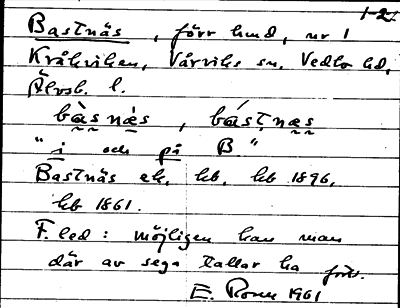 1-2.
Bastnäs, förr hmd, nr 1
Kråkviken, Vårviks sn, Vedbo hd,
Älvsb. l.
bàsnès, bástnæs
"i och på B."
Bastnäs ek. kb. kb 1896,
kb 1861.
F. led: möjligen kan man
där av sega tallar ha forts.
E. 1961